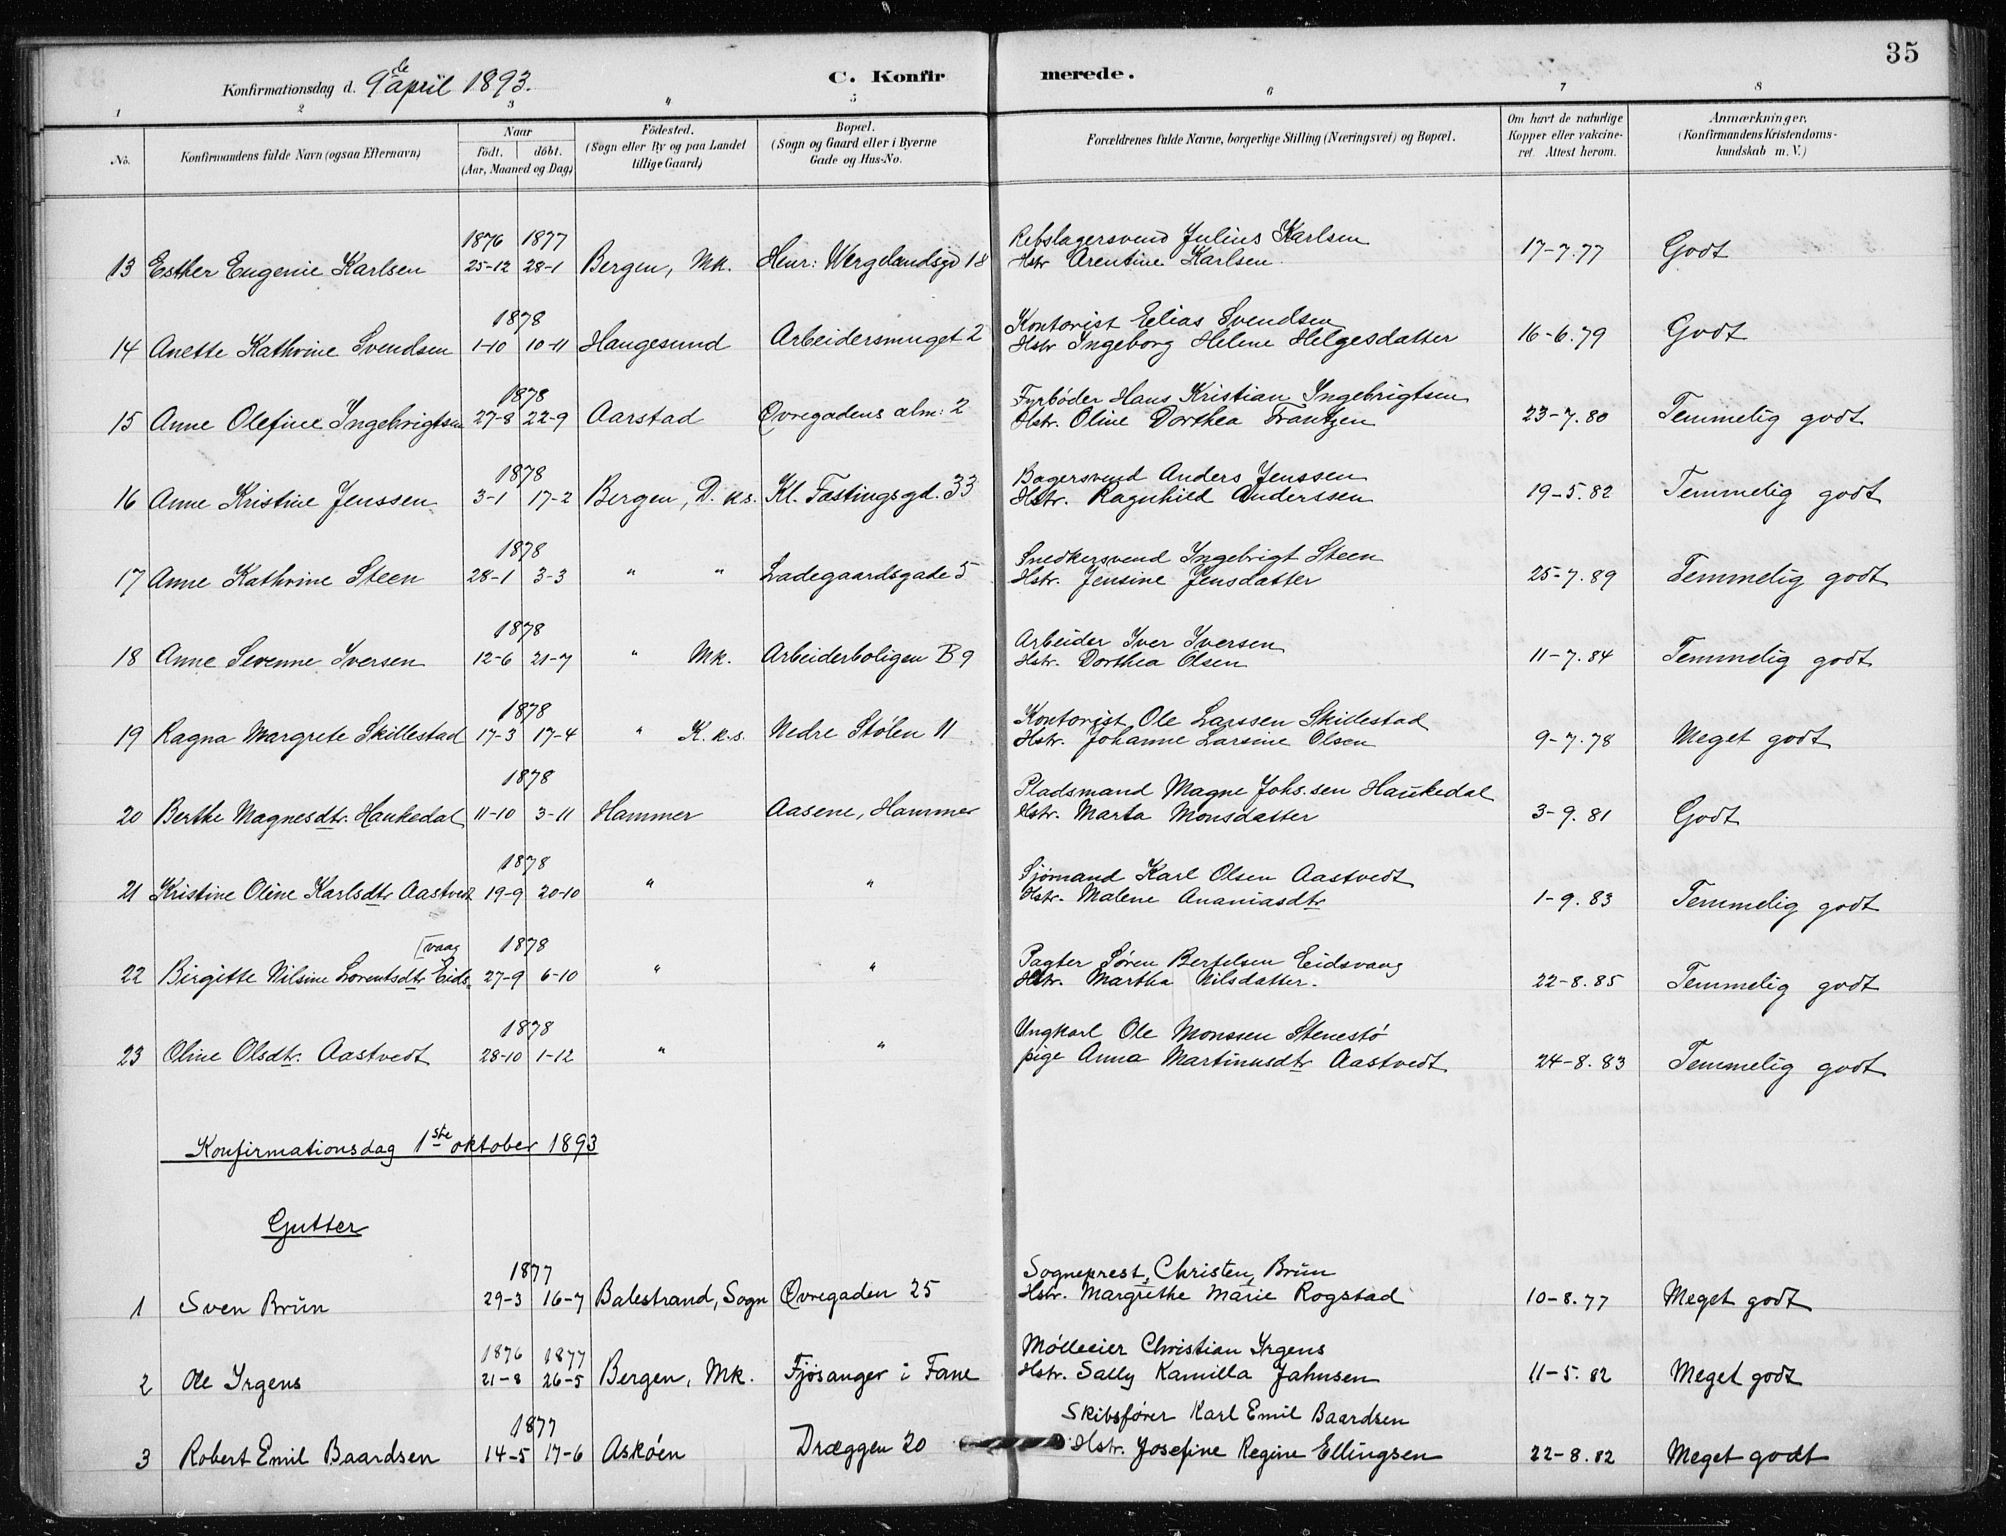 35
Konfirmationsdag d. 9de april 1893. C. Konfirmerede.
1 2 3 " 5 6 7 8
No. Konfirmandens fulde Navn (ogsaa Efternavn) Naar født. døbt. (Aar, Maaned og Dag) Fødested. (Sogn eller By og paa Landet tillige Gaard) Bopæl. (Sogn og Gaard eller i Byerne Gade og Hus-No. Forældrenes fulde Navne, borgerlige Stilling (Næringsvei) og Bopæl. Om havt de naturlige Kopper eller vakcineret. Attest herom. Anmærkninger. (Konfirmandens Kristendomskundskab m. V.)
1876 1877 Rebslagersvend Julius Karlsen
13 Esther Eugenie Karlsen 25-12 28-1 Bergen, Mk. Henr: Wergelandsgd 18 Hstr Arentine Karlsen. 17-7.77 Godt
1878 Kontorist Elias Svendsen
14 Anette Kathrine Svendsen 1-10 10-11 Haugesund Arbeidersmuget 2 Hstr Ingeborg Helene Helgesdatter 16-6.79 Godt
1878 Fyrbøder Hans Kristian Ingebrigtsen
15 Anne Olefine Ingebrigtsen 27-8 22-9 Aarstad Øvregadens alm: 2 Hstr. Oline Dorthea Frantzen 23-7.80 Temmelig godt
1878 Bagersvend Anders Jenssen
16 Anne Kristine Jenssen 3-1 17-2 Bergen, D. k.s. Kl. Fastingsgd. 33 Hstr. Ragnhild Anderssen 19-5.82 Temmelig godt
1878 Snedkersvend Ingebrigt Steen
17 Anne Kathrine Steen 28-1 3-3 " " Ladegaardsgade 5 Hstr. Jensine Jensdatter 25-7.89 Temmelig godt
1878 Arbeider Iver Iversen
18 Anne Severine Iversen 12-6 21-7 " Mk. Arbeiderboligen B 9 Hstr. Dorthea Olsen 11-7.84 Temmelig godt
1878 Kontorist Ole Larssen Skillestad
19 Ragna Margrete Skillestad 17-3 17-4 " K. k.s. Nedre Stølen 11 Hstr. Johanne Larsine Olsen 9-7.78 Meget godt
1878 Pladsmand Magne Johs.sen Haukedal
20 Berthe Magnesdtr. Haukedal 11-10 3-11 Hammer Aasene, Hammer Hstr. Marta Monsdatter 3-9.81 Godt
1878 Sjømand Karl Olsen Aastvedt
21 Kristine Oline Karlsdtr Aastvedt 19-9 20-10 " " Hstr. Malene Ananiasdtr 1-9.83 Temmelig godt
[vaag 1878 Pagter Søren Bertelsen Eidsvaag
22 Birgitte Nilsine Lorentsdtr Eids- 27-9 6-10 " " Hstr. Martha Nilsdatter. 22-8.85 Temmelig godt
1878 Ungkarl Ole Monssen Stenestø
23 Oline Olsdtr. Aastvedt 28-10 1-12 " " pige Anna Martinusdtr Aastvedt 24-8.83 Temmelig godt
Konfirmationsdag 1ste oktober 1893
Gutter
1877 Sogneprest, Christen, Brun
1 Sven Brun 29-3 16-7 Balestrand, Sogn Øvregaden 25 Hstr. Margrethe Marie Rogstad 10-8.77 Meget godt
1876 1877 Mølleeier Christian Irgens
2 Ole Irgens 21-8 26-5 Bergen, Mk. Fjøsanger i Fane Hstr. Sally Kamilla Jahnsen 11-5.82 Meget godt
1877 Skibsfører Karl Emil Baardsen
3 Robert Emil Baardsen 14-5 17-6 Askøen Dræggen 20 Hstr. Josefine Regine Ellingsen 22-8.82 Meget godt